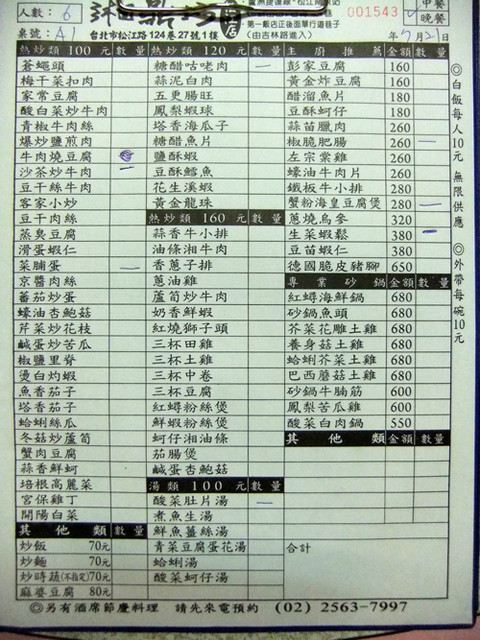 人數: 6
桌號: A1
台北市松江路124巷27號1樓
店
蘆洲捷運線·松江南京站
第一飯店正後面單行道巷子
(由吉林路進入)
001543
中餐
晚餐
年7月21日
熱炒類 100元 數量
蒼蠅頭
梅干菜扣肉
家常豆腐
酸白菜炒牛肉
青椒牛肉絲
爆炒鹽煎肉
牛肉燒豆腐
沙茶炒牛肉
豆干絲牛肉
客家小炒
豆干肉絲
蒸臭豆腐
滑蛋蝦仁
菜脯蛋 一
京醬肉絲
蕃茄炒蛋
蠔油杏鮑菇
芹菜炒花枝
鹹蛋炒苦瓜
椒鹽里脊
燙白灼蝦
魚香茄子
塔香茄子
蛤蜊絲瓜
冬菇炒蘆筍
蟹肉豆腐
蒜香鮮蚵
培根高麗菜
宮保雞丁
開陽白菜
其他類 數量
炒飯 70元
炒麵 70元
炒時蔬(不指定)70元
麻婆豆腐 80元
熱炒類 120元 數量
糖醋咕咾肉 一
蒜泥白肉
五更腸旺
鳳梨蝦球
塔香海瓜子
糖醋魚片
鹽酥蝦
豆酥鱈魚
花生溪蝦
黃金龍珠
熱炒類 160元 數量
蒜香牛小排
油條湘牛肉
香蔥子排
蔥油雞
蘆筍炒牛肉
奶香鮮蝦
紅燒獅子頭
三杯田雞
三杯土雞
三杯中卷
三杯豆腐
紅蟳粉絲煲
鮮蝦粉絲煲
蚵仔湘油條
茄腸煲
鹹蛋杏鮑菇
湯類 100元 數量
酸菜肚片湯 一
煮魚生湯
鮮魚薑絲湯
青菜豆腐蛋花湯
蛤蜊湯
酸菜蚵仔湯
主廚推薦 金額 數量
彭家豆腐 160
黃金炸豆腐 160
醋溜魚片 180
豆酥蚵仔 180
蒜苗臘肉 260
椒脆肥腸 260 一
左宗棠雞 260
蠔油牛肉片 260
鐵板牛小排 280
蟹粉海皇豆腐煲 280 一
蔥燒烏參 320
生菜蝦鬆 380 一
豆苗蝦仁 380
德國脆皮豬腳 650
專業砂鍋 金額 數量
紅蟳海鮮鍋 680
砂鍋魚頭 680
芥菜花雕土雞 680
養身菇土雞 680
蛤蜊芥菜土雞 680
巴西蘑菇土雞 680
砂鍋牛腩筋 600
鳳梨苦瓜雞 600
酸菜白肉鍋 550
其他類 金額 數量
合計
◎白飯每人10元 無限供應 ◎外帶每碗10元
◎另有酒席節慶料理 請先來電預約 (02) 2563-7997